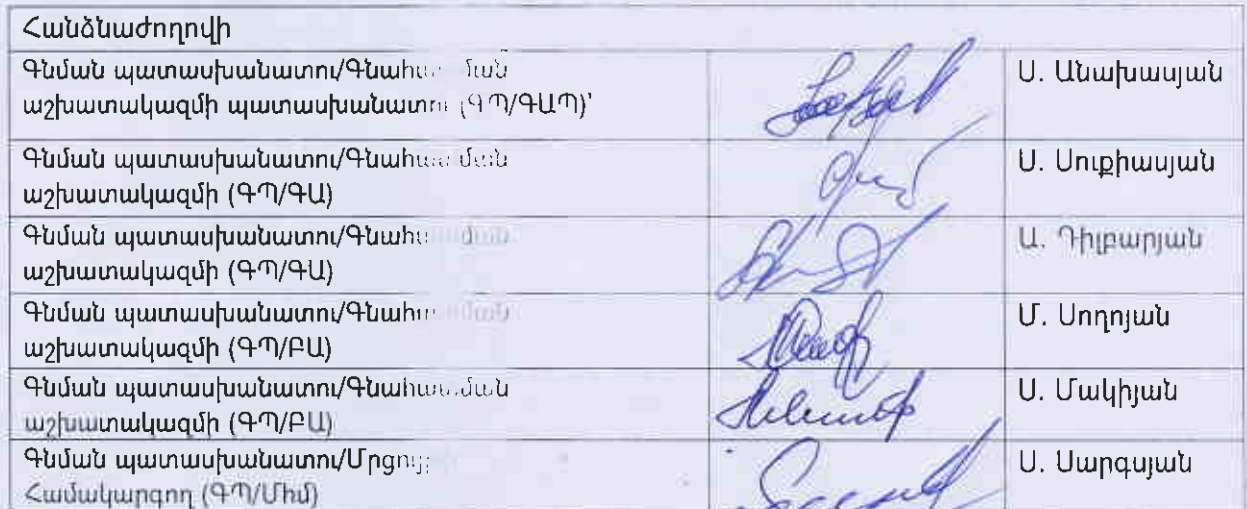 Հանձնաժողովի
Գնման պատասխանատու/Գնահատման
աշխատակազմի պատասխանատու (ԳՊ/ԳԱՊ)'
Ս. Անախասյան
Գնման պատասխանատու/Գնահատման
աշխատակազմի (ԳՊ/ԳԱ)
Ս. Սուքիասյան
Գնման պատասխանատու/Գնահատման
աշխատակազմի (ԳՊ/ԳԱ)
Ա. Դիլբարյան
Գնման պատասխանատու/Գնահատման
աշխատակազմի (ԳՊ/ԲԱ)
Մ. Սողոյան
Գնման պատասխանատու/Գնահատման
աշխատակազմի (ԳՊ/ԲԱ)
Ս. Մակիյան
Գնման պատասխանատու/
Համակարգող (ԳՊ/ՄհՄ)
Ս. Սարգսյան